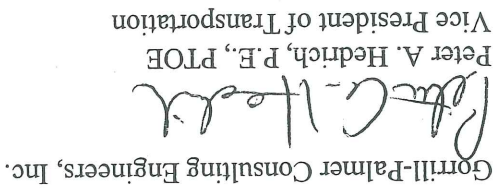 Gorrill-Palmer Consulting Engineers, Inc.
Peter A. Hedrich
Peter A. Hedrich, P.E., PTOE
Vice President of Transportation